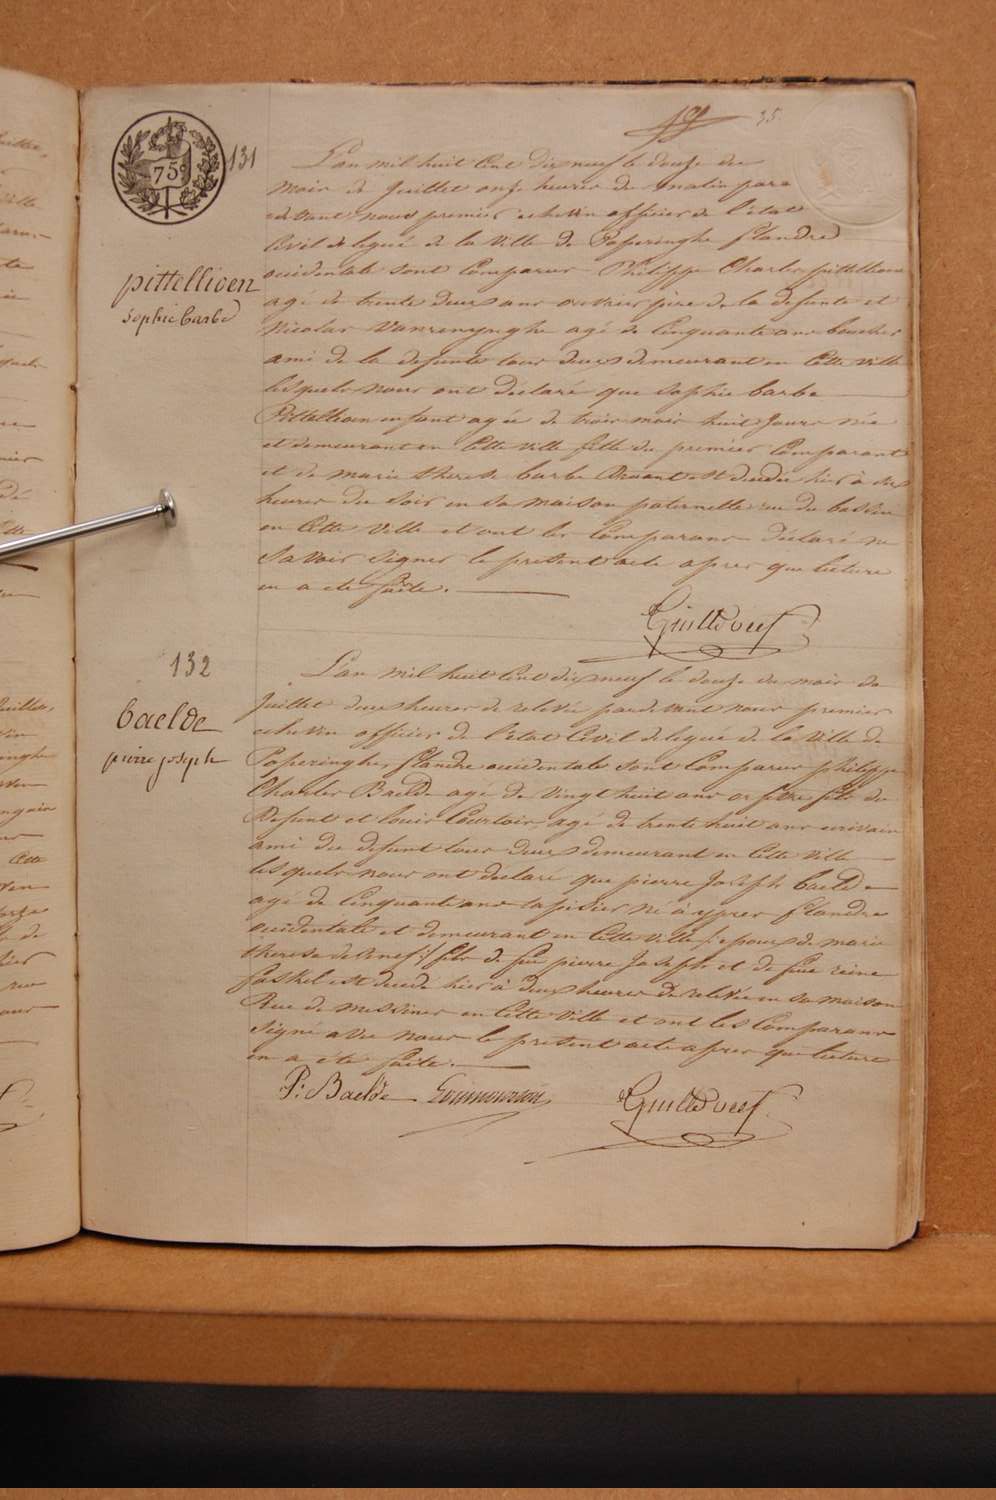 35
75c
131
L'an mil huit Cent dix neuf le douze du
mois de Juillet onze heures du matin para
devant nous premier echevin officier de l'état
Civil delegué de la ville de Poperinghe flandre
occidentale sont Comparus Philippe Charles pittellioen
pittellioen
Sophie barbe
agé de trente deux ans ouvrier père de la defunte et
Nicolas Vanrenynghe agé de Cinquante ans boucher
ami de la defunte tous deux demeurant en Cette ville
lesquels nous ont déclaré que Sophie barbe
Pittellioen enfant agée de trois mois huit Jours née
et demeurant en Cette ville fille du premier Comparant
et de marie therese barbe est decedée hier à dix
heures du soir en sa maison paternelle rue du bassin
en Cette ville et ont les Comparans déclaré ne
Savoir signer le present acte apres que lecture
en a ete faite.
132
L'an mil huit Cent dix neuf le douze du mois de
baelde
pierre joseph
Juillet deux heures de relevée pardevant nous premier
echevin officier de l'état Civil delegué de la ville de
Poperinghe, flandre occidentale sont Comparus philippe
Charles Baelde agé de vingt huit ans orfèvre fils du
Defunt et louis Courtois, agé de trente huit ans ecrivain
ami du defunt tous deux demeurant en Cette ville
lesquels nous ont declaré que pierre Joseph baelde
agé de Cinquante ans tapisier né à ypres flandre
occidentale et demeurant en Cette ville epoux de marie
theresa fils de feu pierre Joseph et de feue reine
est decedé hier à deux heures de relevée en sa maison
Rue de messines en Cette ville et ont les Comparans
signé avec nous le present acte apres que lecture
en a ete faite.
P: Baelde